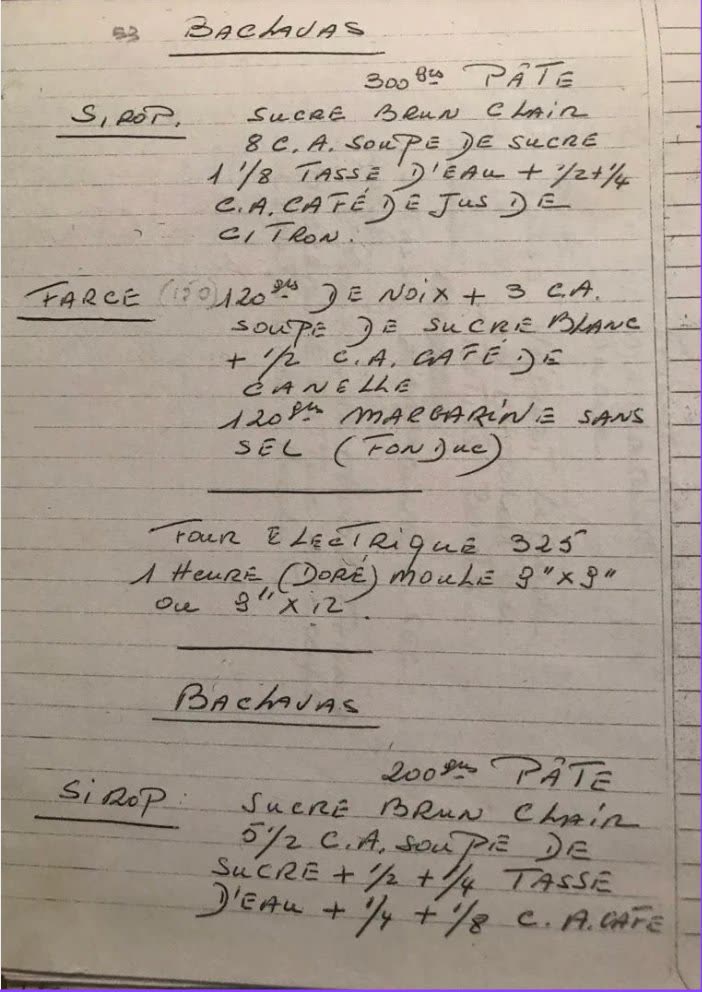 53 BACLAVAS
300 grs PÂTE
SIROP. SUCRE BRUN CLAIR
8 C.A. SOUPE DE SUCRE
1 1/8 TASSE D'EAU + 1/2+1/4
C.A. CAFÉ DE JUS DE
CITRON.
FARCE (150) 120 grs DE NOIX + 3 C.A.
SOUPE DE SUCRE BLANC
+ 1/2 C.A. CAFÉ DE
CANELLE
120 grs MARGARINE SANS
SEL (FONDUE)
FOUR ELECTRIQUE 325
1 HEURE (DORÉ) MOULE 9" X 9"
OU 9" X 12.
BACLAVAS
200 grs PÂTE
SIROP: SUCRE BRUN CLAIR
5 1/2 C.A. SOUPE DE
SUCRE + 1/2 + 1/4 TASSE
D'EAU + 1/4 + 1/8 C.A. CAFE